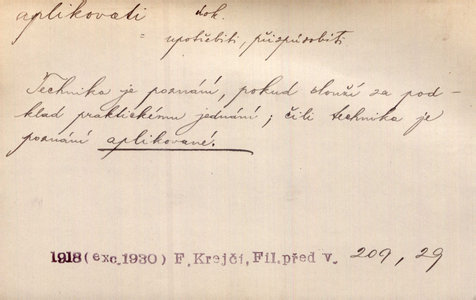 aplikovati dok.
= upotřebiti, přizpůsobiti
Technika je poznání, pokud slouží za pod-
klad praktickému jednání; čili technika je
poznání aplikované.
1918(exc.1930) F. Krejčí, Fil.před v. 209, 29